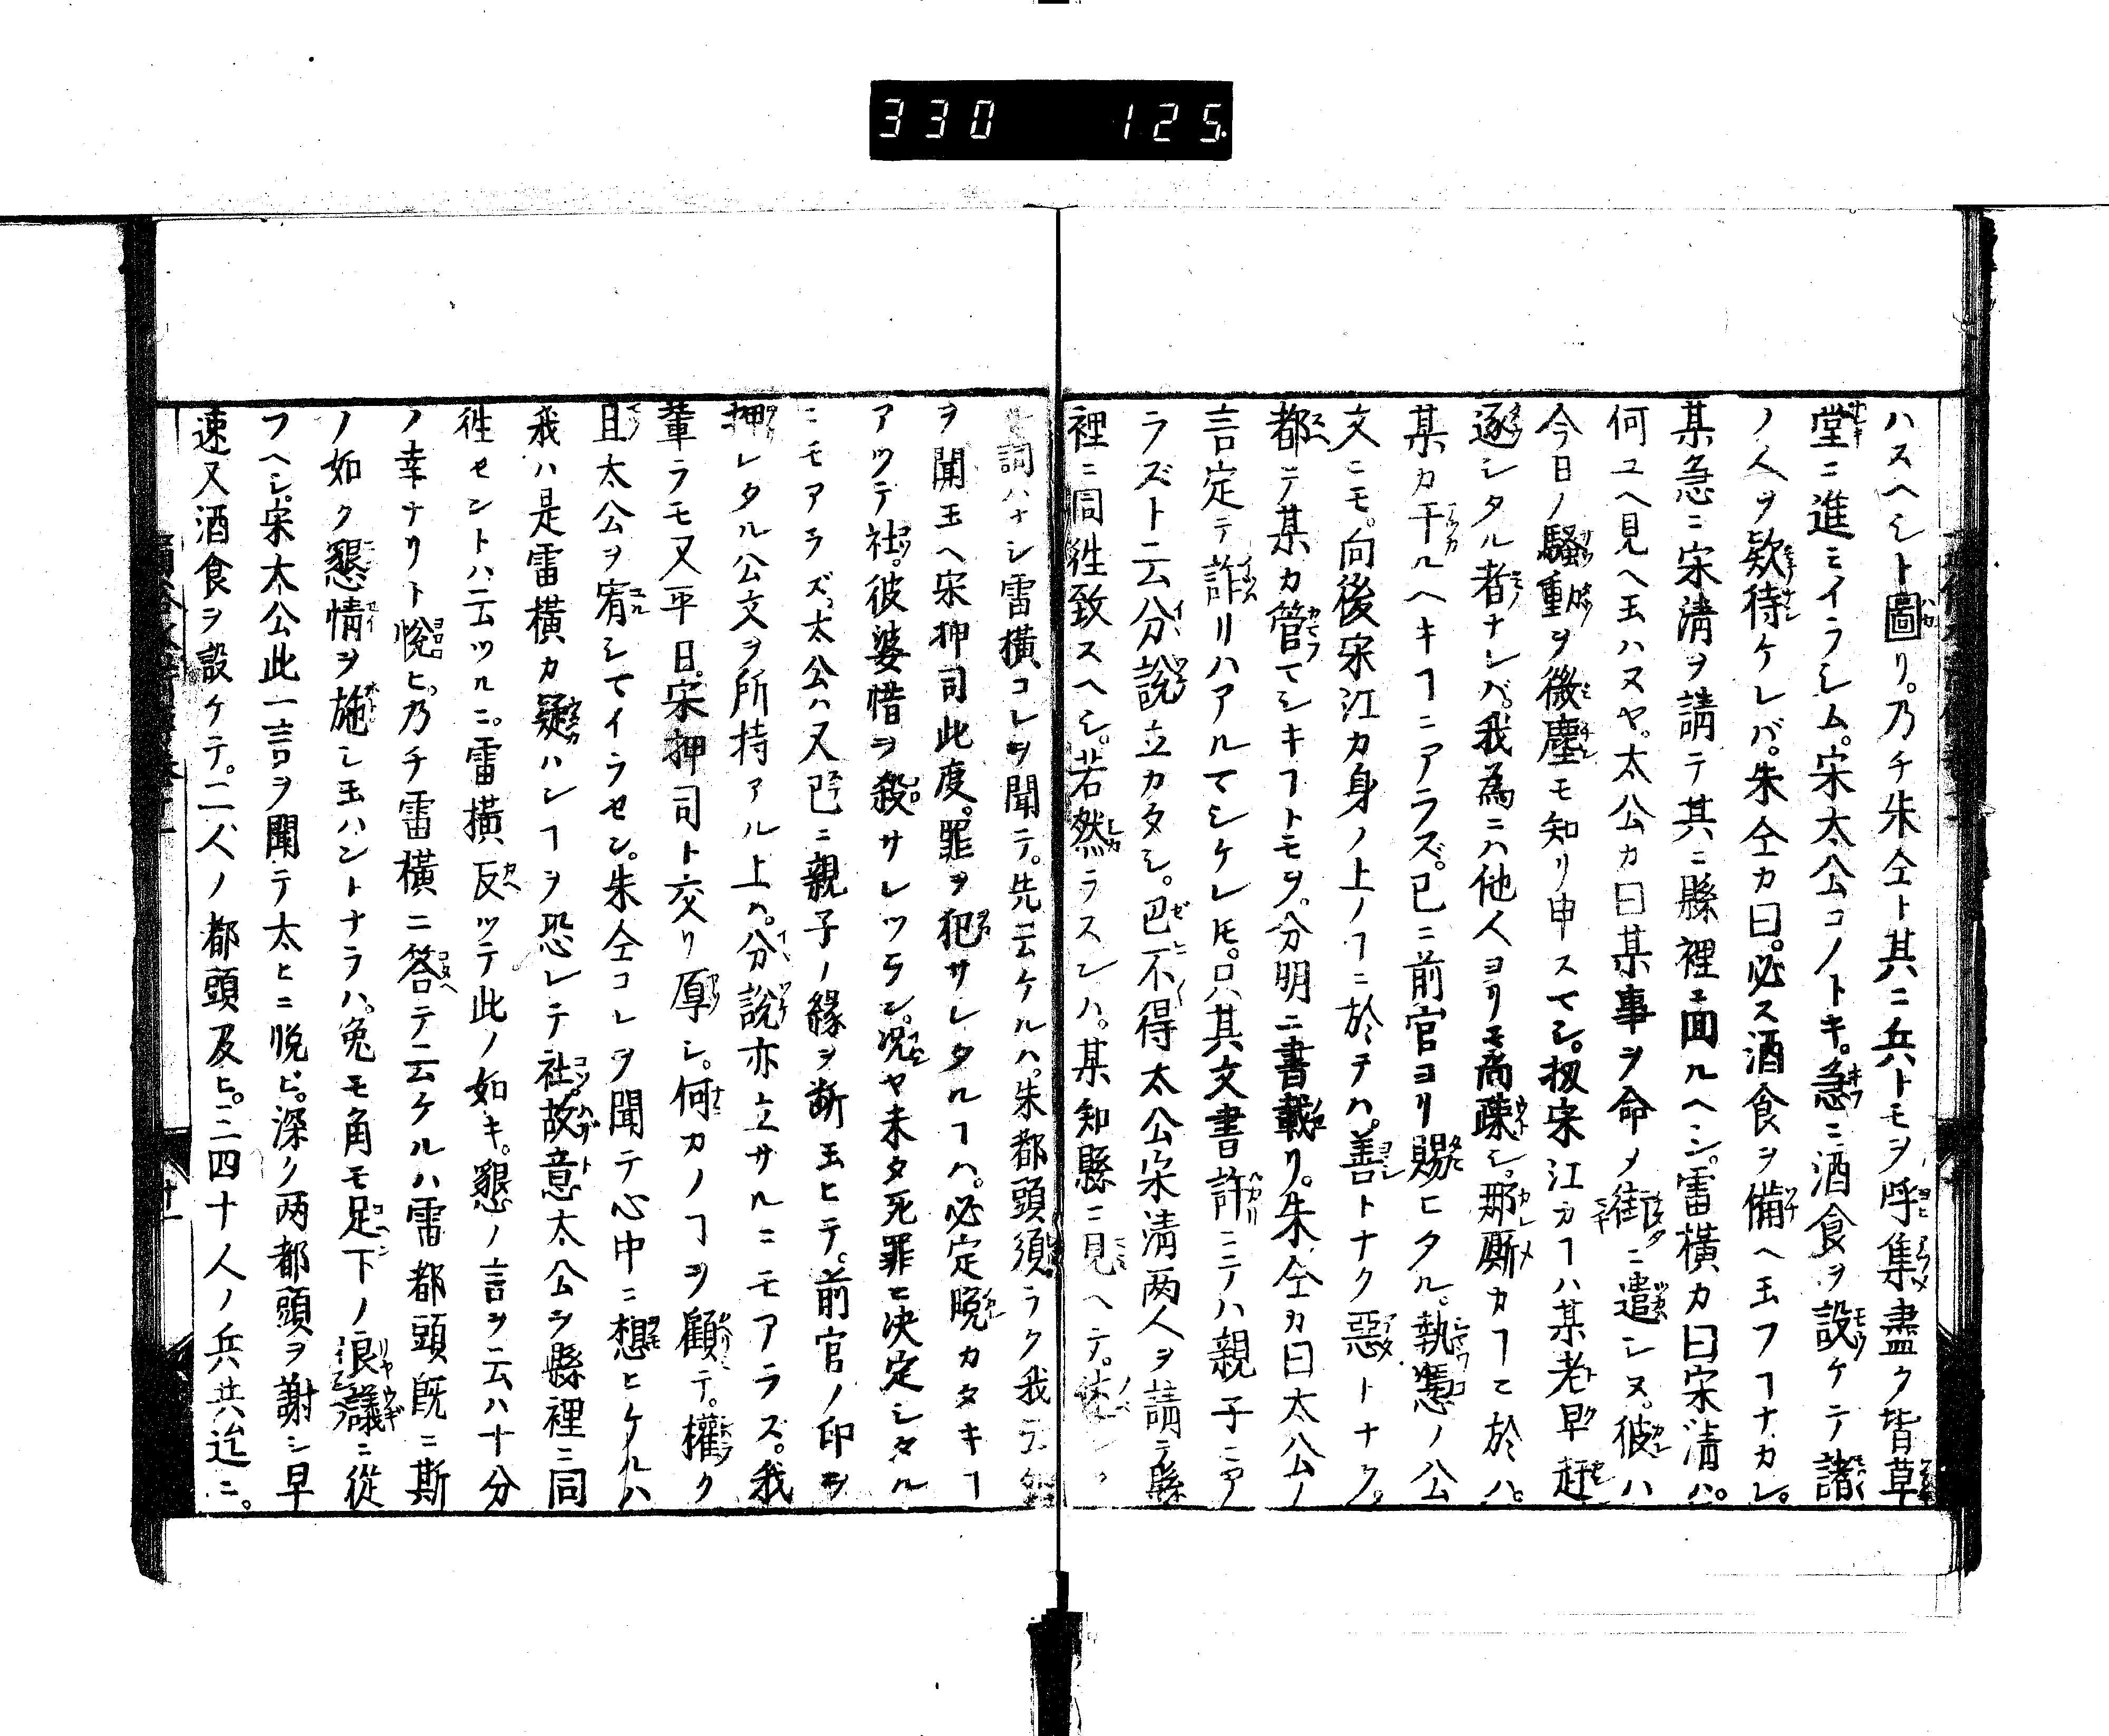 330 125
ハスヘシト圖リ。乃チ朱仝ト其ニ兵トモヲ呼集盡ク皆草
堂ニ進ミイラシム。宋太公コノトキ。急ニ酒食ヲ設ケテ諸
ノ人ヲ欵待ケレバ。朱仝カ曰。必ス酒食ヲ備ヘ玉フヿナカレ。
某急ニ宋淸ヲ請テ其ニ縣裡ヱ囬ルヘシ。雷橫カ曰宋淸ハ。
何ユヘ見ヘ玉ハヌヤ。太公カ曰某事ヲ命メ街ニ遣シヌ。彼ハ
今日ノ騷動ヲ微塵モ知リ申スマシ。扨宋江カヿハ某老早赶
逐シタル者ナレバ。我為ニハ他人ヨリモ髙疎シ。那厮カヿヒ於ハ。
某カ干ルヘキヿニアラズ。已ニ前官ヨリ賜ヒタル。執憑ノ公
文ニモ。向後宋江カ身ノ上ノヿニ於テハ。善トナク惡トナク。
都テ某カ管マシキヿトモヲ。分明ニ書載リ。朱仝カ曰太公ノ
言定テ詐リハアルマシケレ𪜈。只其文書許ニテハ親子ニア
ラズト云分說立カタシ。巴不得太公宋淸两人ヲ請テ縣
裡ニ同徃致スヘシ。若然ラスンハ。某知縣ニ見ヘテ。
詞ハナシ雷橫コレヲ聞テ。先云ケルハ。朱都頭須ラク我
ヲ聞玉ヘ宋押司此度。罪ヲ犯サレタルヿハ。必定脫カタキヿ
アツテ社。彼婆惜ヲ殺サレツラン。况ヤ未タ死罪ヒ決定シタル
ニモアラズ。太公ハ又已ニ親子ノ緣ヲ断玉ヒテ。前官ノ印ヲ
押レタル公文ヲ所持アル上ハ。分說亦立サルニモアラズ。我
輩ラモ又平日。宋押司ト交リ厚シ。何カノヿヲ顧テ。權ク
且太公ヲ宥シマイラセン。朱仝コレヲ聞テ心中ニ想ヒケルハ
我ハ是雷橫カ疑ハンヿヲ恐レテ社。故意太公ヲ縣裡ニ同
徃セントハ云ツルニ。雷橫反ツテ此ノ如キ。懇ノ言ヲ云ハ十分
ノ幸ナリト悅ヒ。乃チ雷橫ニ答テ云ケルハ雷都頭既ニ斯
ノ如ク懇情ヲ施シ玉ハントナラハ。兔モ角モ足下ノ良議ニ從
フヘシ。宋太公此一言ヲ聞テ太ヒニ悅ヒ。深ク两都頭ヲ謝シ早
速又酒食ヲ設ケテ。二人ノ都頭及ヒ。三四十人ノ兵共迠ニ。